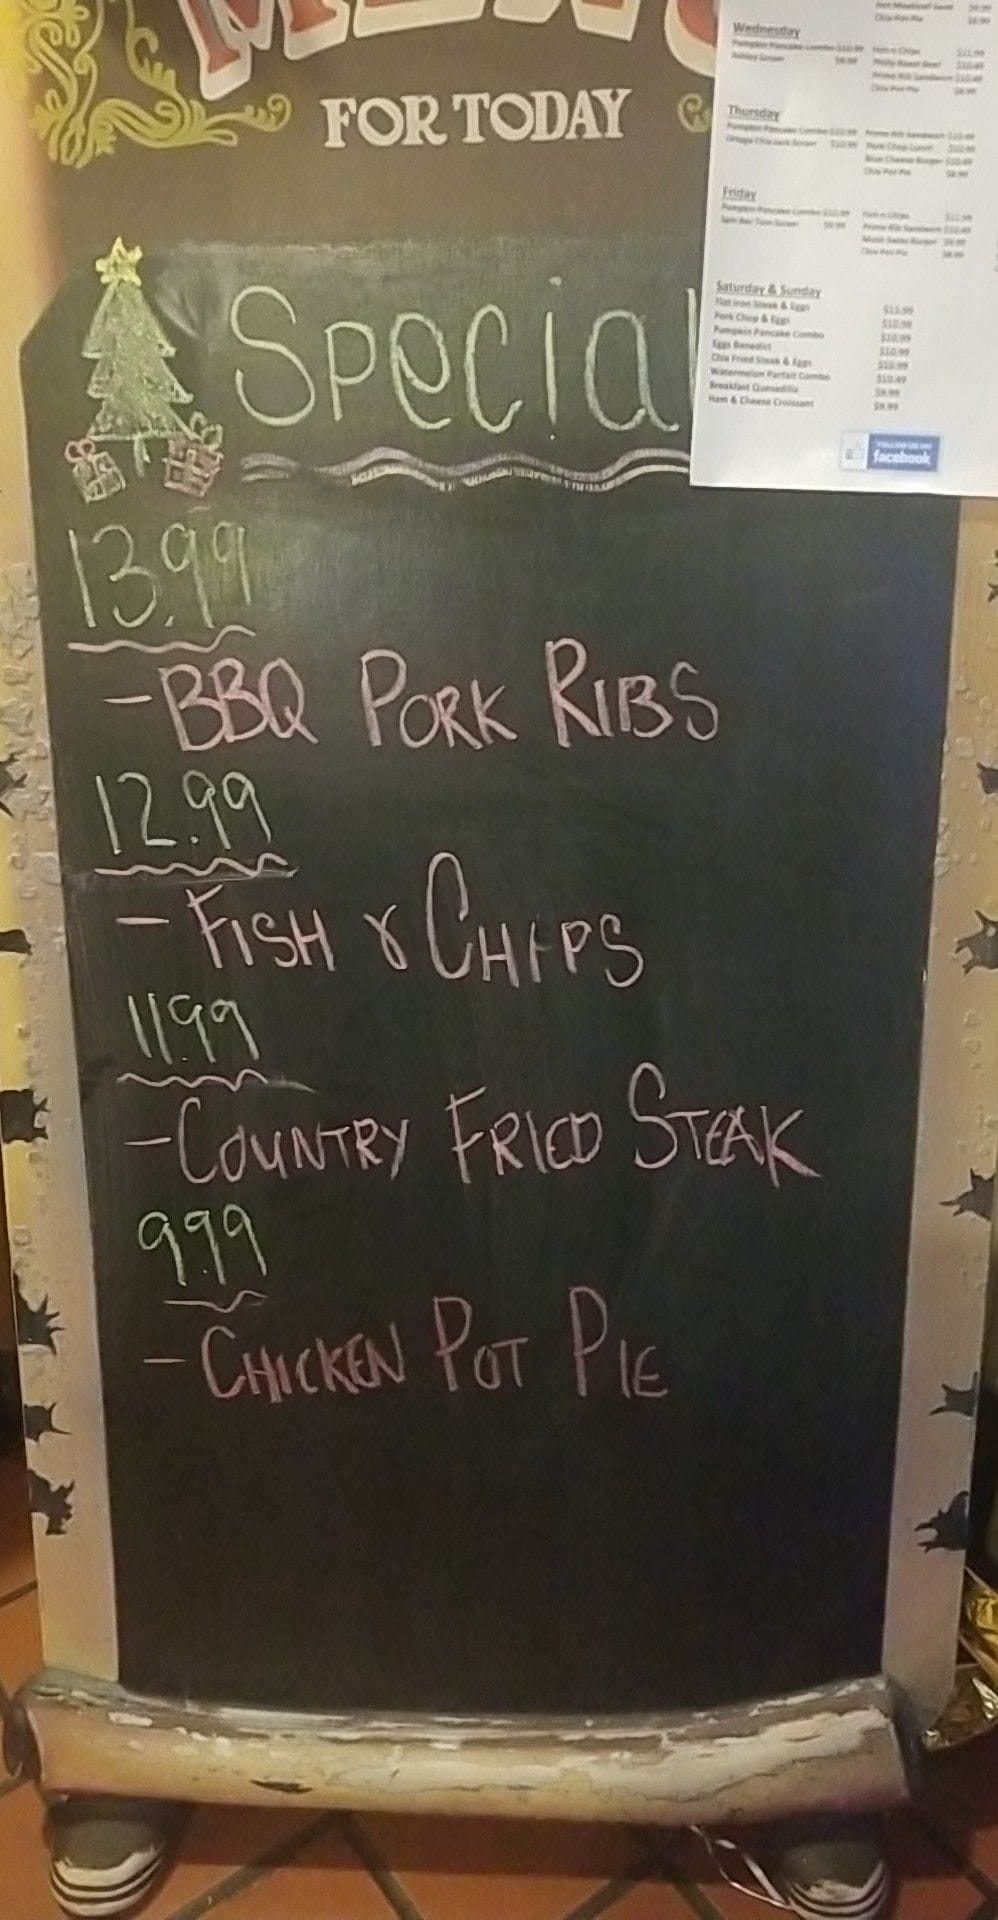 MENU
FOR TODAY
Special
13.99
- BBQ PORK RIBS
12.99
- FISH & CHIPS
11.99
- COUNTRY FRIED STEAK
9.99
- CHICKEN POT PIE
Hot Meatloaf Sand $9.99
Chix Pot Pie $8.99
Wednesday
Pumpkin Pancake Combo $10.99 Fish n Chips $11.99
Ashley Scram $9.99 Philly Roast Beef $10.49
Prime Rib Sandwich $10.49
Chix Pot Pie $8.99
Thursday
Pumpkin Pancake Combo $10.99 Prime Rib Sandwich $10.49
Ortega Chix Jack Scram $10.99 Pork Chop Lunch $10.99
Blue Cheese Burger $10.49
Chix Pot Pie $8.99
Friday
Pumpkin Pancake Combo $10.99 Fish n Chips $11.99
Spin Bac Tom Scram $9.99 Prime Rib Sandwich $10.49
Mush Swiss Burger $9.99
Chix Pot Pie $8.99
Saturday & Sunday
Flat Iron Steak & Eggs $13.99
Pork Chop & Eggs $10.99
Pumpkin Pancake Combo $10.99
Eggs Benedict $10.99
Chix Fried Steak & Eggs $10.99
Watermelon Parfait Combo $10.49
Breakfast Quesadilla $9.99
Ham & Cheese Croissant $9.99
FOLLOW US ON
facebook